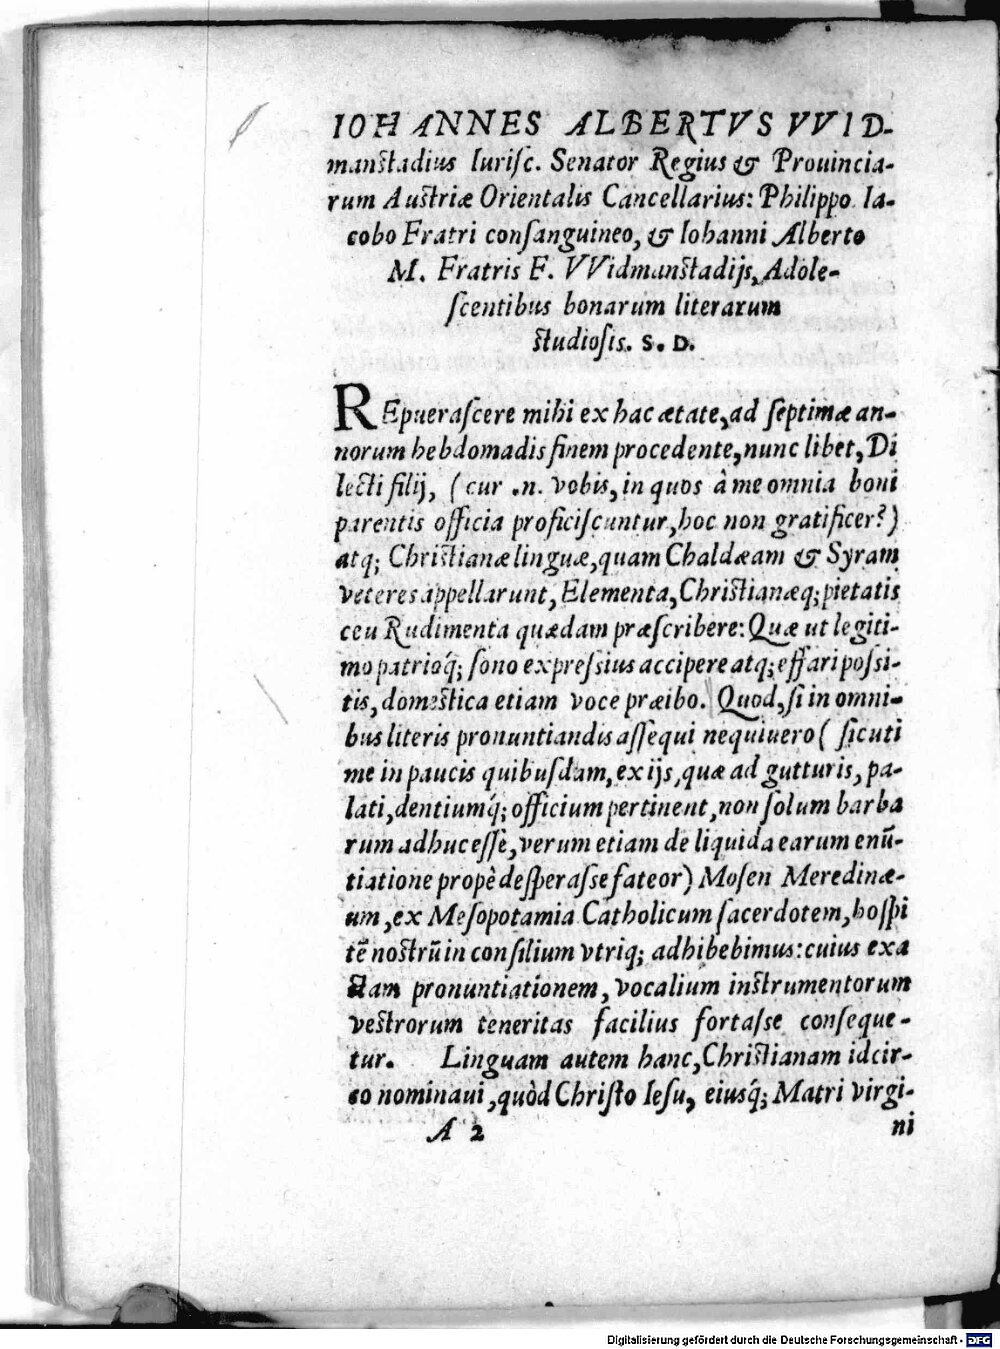 IOHANNES ALBERTVS VVID-
manstadius Iurisc. Senator Regius & Prouincia-
rum Austriæ Orientalis Cancellarius: Philippo Ia-
cobo Fratri consanguineo, & Iohanni Alberto
M. Fratris F. VVidmanstadijs, Adole-
scentibus bonarum literarum
studiosis. S. D.
REpuerascere mihi ex hac ætate, ad septimæ an-
norum hebdomadis finem procedente, nunc libet, Di
lecti filij, (cur .n. vobis, in quos à me omnia boni
parentis officia proficiscuntur, hoc non gratificer?)
atq; Christianæ linguæ, quam Chaldæam & Syram
veteres appellarunt, Elementa, Christianæq; pietatis
ceu Rudimenta quædam præscribere: Quæ ut legiti-
mo patrioq́; sono expressius accipere atq; effari possi-
tis, domestica etiam voce præibo. Quod, si in omni-
bus literis pronuntiandis assequi nequiuero (sicuti
me in paucis quibusdam, ex ijs, quæ ad gutturis, pa-
lati, dentiumq́; officium pertinent, non solum barba
rum adhuc esse, verum etiam de liquida earum enū-
tiatione propè desperasse fateor) Mosen Meredinæ-
um, ex Mesopotamia Catholicum sacerdotem, hospi
tē nostrū in consilium vtriq; adhibebimus: cuius exa
ctam pronuntiationem, vocalium instrumentorum
vestrorum teneritas facilius fortasse conseque-
tur. Linguam autem hanc, Christianam idcir-
co nominaui, quòd Christo Iesu, eiusq́; Matri virgi-
A 2 ni
Digitalisierung gefördert durch die Deutsche Forschungsgemeinschaft - DFG